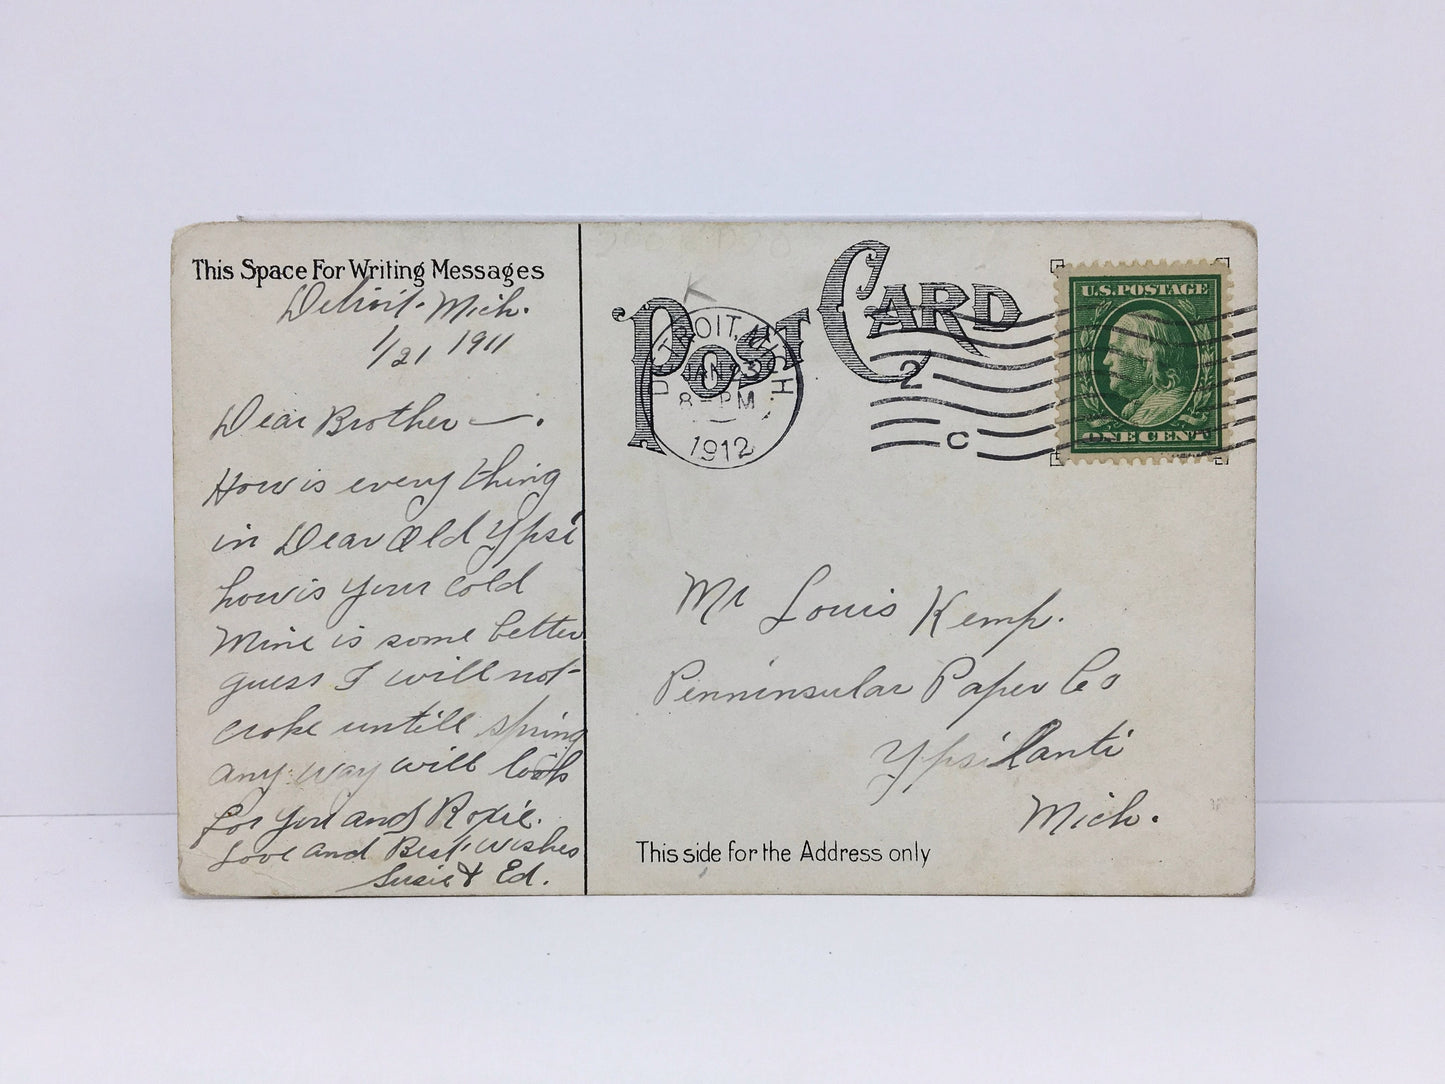 This Space For Writing Messages
Detroit. Mich.
1/21 1911
Dear Brother —.
How is every thing
in Dear Old Ypsi
how is your cold
Mine is some better
guess I will not
croke untill spring
any way will look
for you and Roxie.
Love and Best wishes
Susie & Ed.
K
POST CARD
DETROIT, MICH
JAN 23
8 - PM
1912
2
C
U.S. POSTAGE
ONE CENT
Mr Louis Kemp.
Penninsular Paper Co
Ypsilanti
Mich.
This side for the Address only